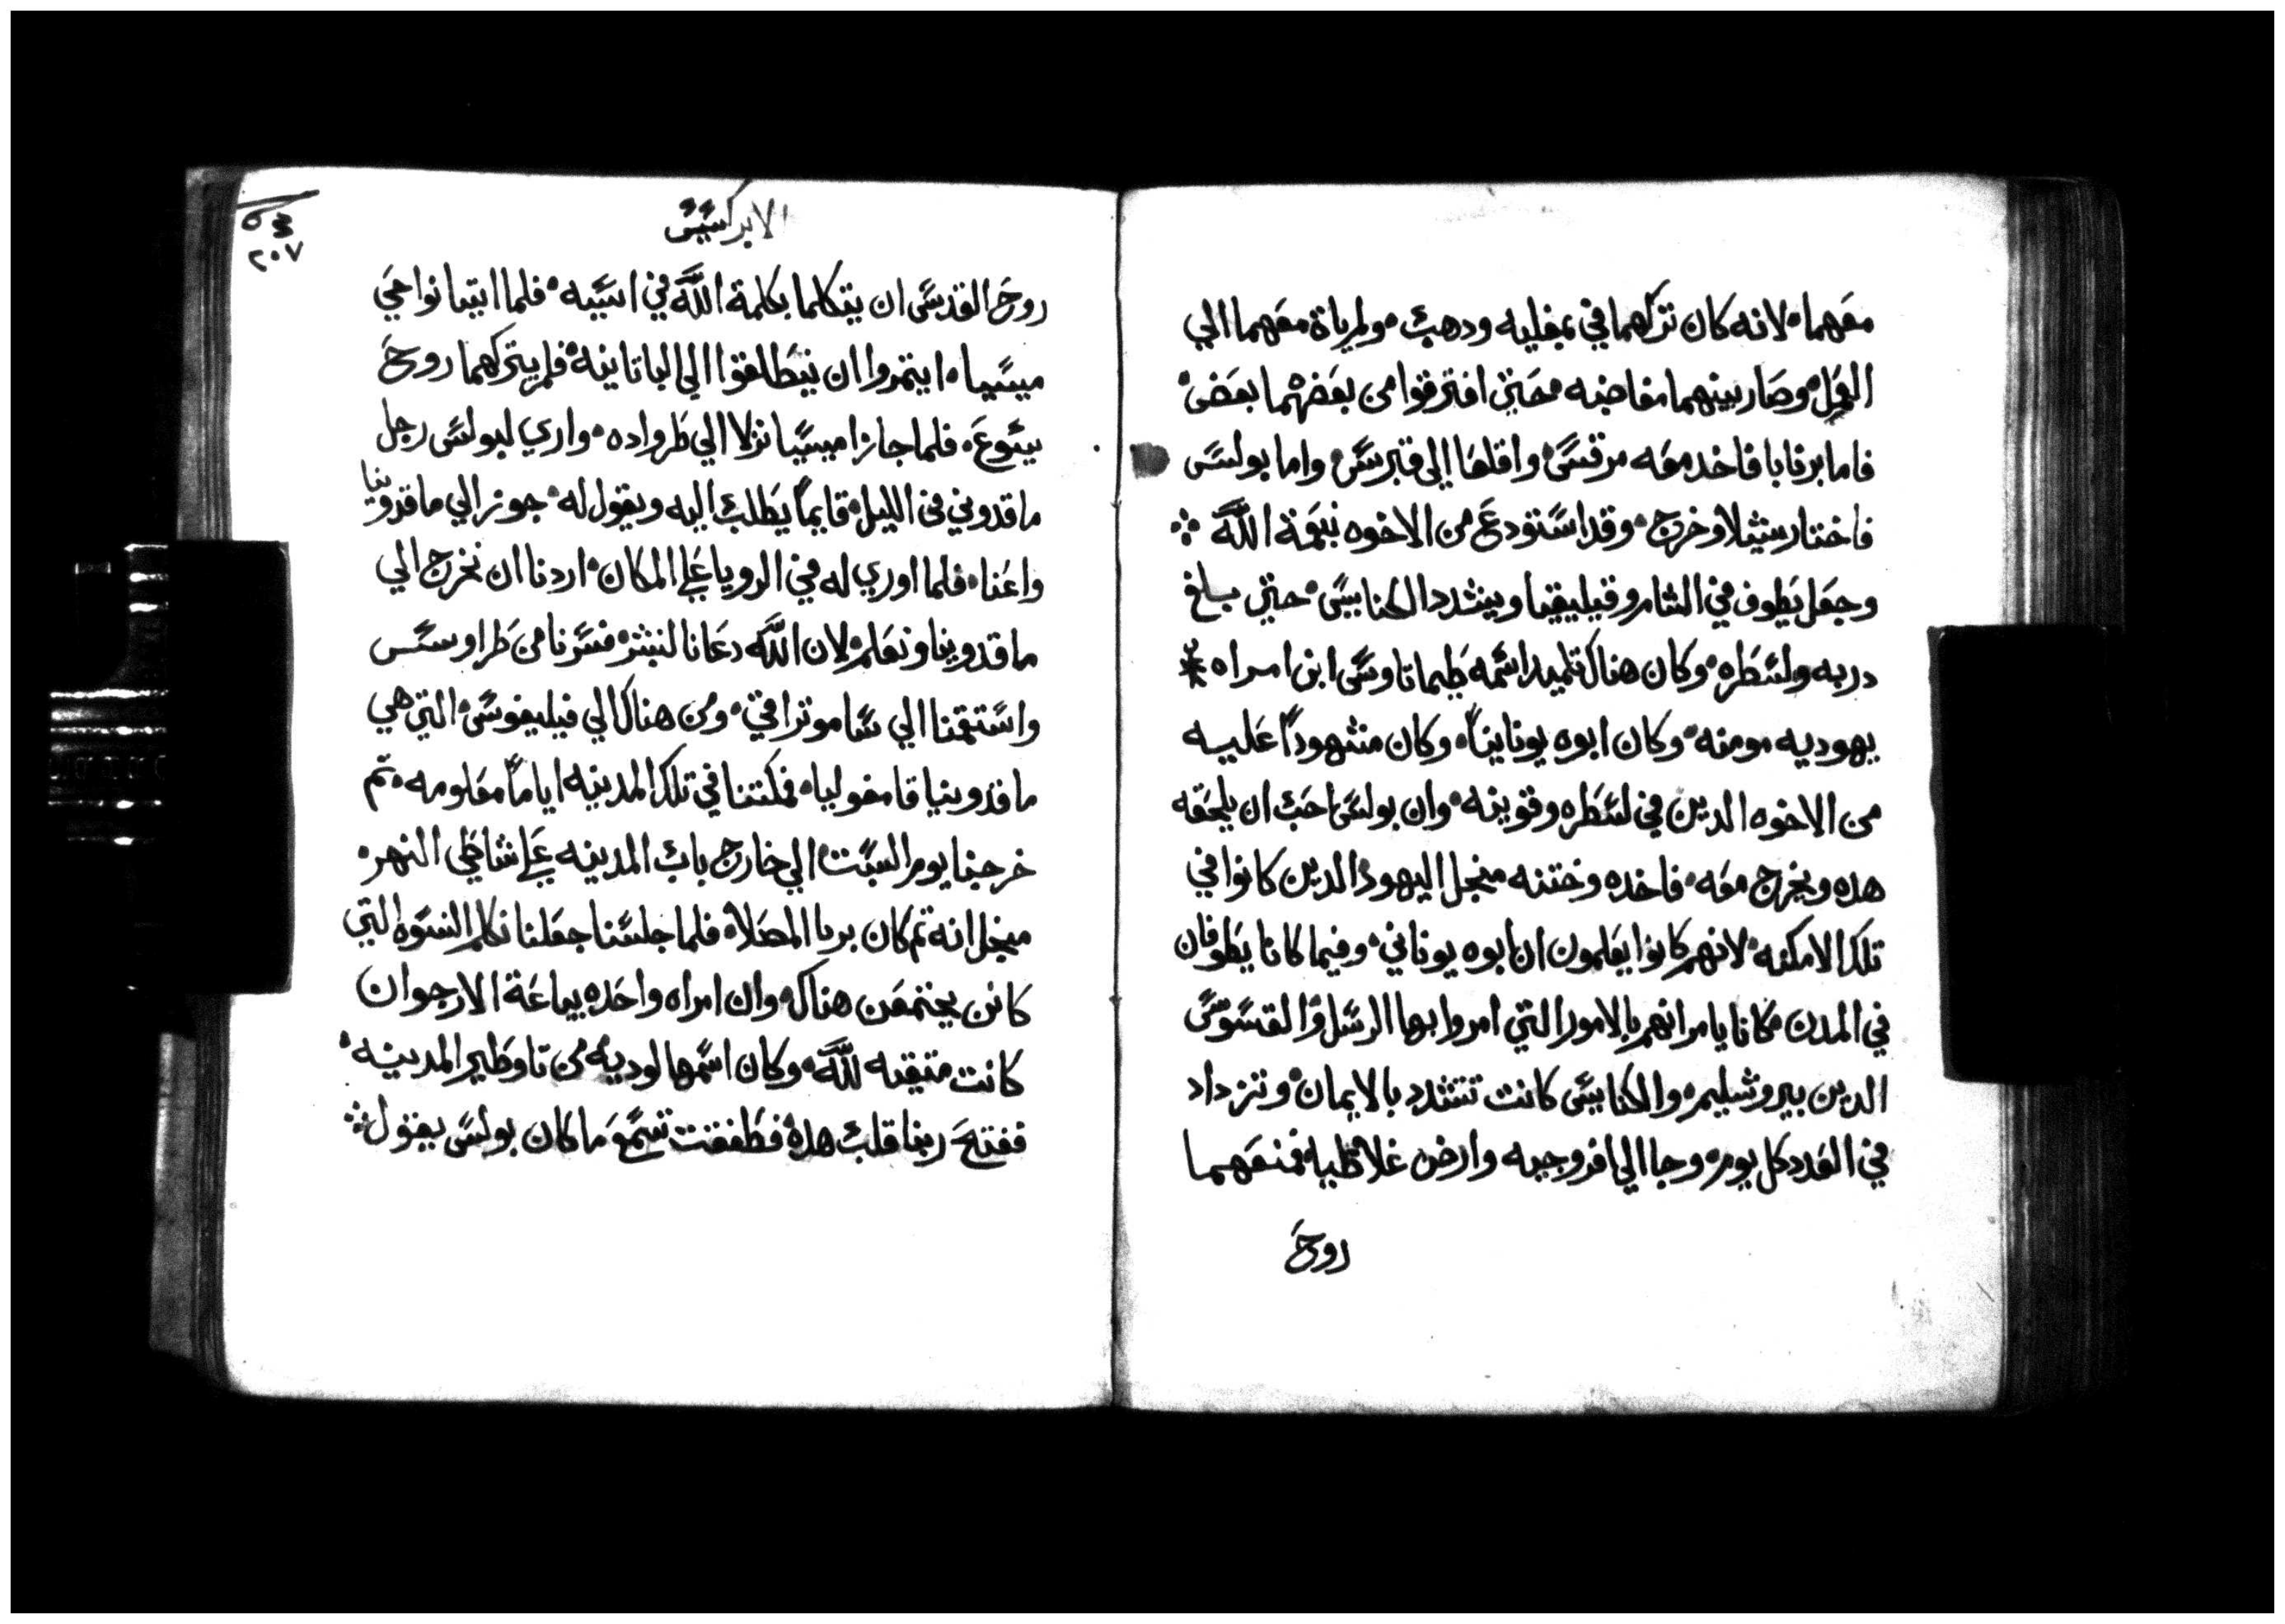 معهما لانه كان تركهما في بمفليه ودهب ولم ياة معهما الي
العمل وصار بينهما مغاضبه حتي افترقوا من بعضهما بعض
فاما برنابا فاخد معه مرقس واقلعا الي قبرس واما بولس
فاختار سيلا وخرج وقد استودع من الاخوه نبعمة الله
وجعل يطوف في الشام وقيليقيا ويشدد الكنايس حتي بلغ
دربه ولسطره وكان هناك تلميد اسمه طيماتاوس ابن امراه
يهوديه مومنه وكان ابوه يونانياً وكان مشهوداً عليه
من الاخوه الدين في لسطره وقونيه وان بولس احب ان يلحقه
هده ويخرج معه فاخده وختنه منجل اليهود الدين كانوا في
تلك الامكنه لانهم كانوا يعلمون ان ابوه يوناني وفيما كانا يطوفان
في المدن كانا يامرانهم بالامور التي امروا بها الرسل والقسوس
الدين بيروشليم والكنايس كانت تتشدد بالايمان وتزداد
في العدد كل يوم وجا الي افروجيه وارض غلاطيه فمنعهما
روح
٢٠٧
الابركسيس
روح القدس ان يتكلما بكلمة الله في اسيه فلما اتيا نواحي
ميسيا ايتمروا ان ينطلقوا الي الباتانيه فلم يتركهما روح
يسوع فلما جازا ميسيا نزلا الي طرواده واري لبولس رجل
ماقدوني في الليل قايماً يطلب اليه ويقول له جوز الي ماقدونيا
واعنا فلما اوري له في الرويا علي المكان اردنا ان نخرج الي
ماقدونيا ونعلم لان الله دعانا لنبشر فسرنا من طراوسس
واستقمنا الي ساموتراقي ومن هناك الي فيليفوس التي هي
ماقدونيا قامغوليا فمكتنا في تلك المدينه اياماً معلومه تم
خرجنا يوم السبت الي خارج باب المدينه علي شاطي النهر
منجل انه تم كان يرا المصلاة فلما جلسنا جعلنا نكلم النسوه التي
كانن يجتمعن هناك وان امراه واحده بياعة الارجوان
كانت متيقنه لله وكان اسمها لوديه من تاوطير المدينه
ففتح ربنا قلب هده فطفقت تسمع ما كان بولس يقول